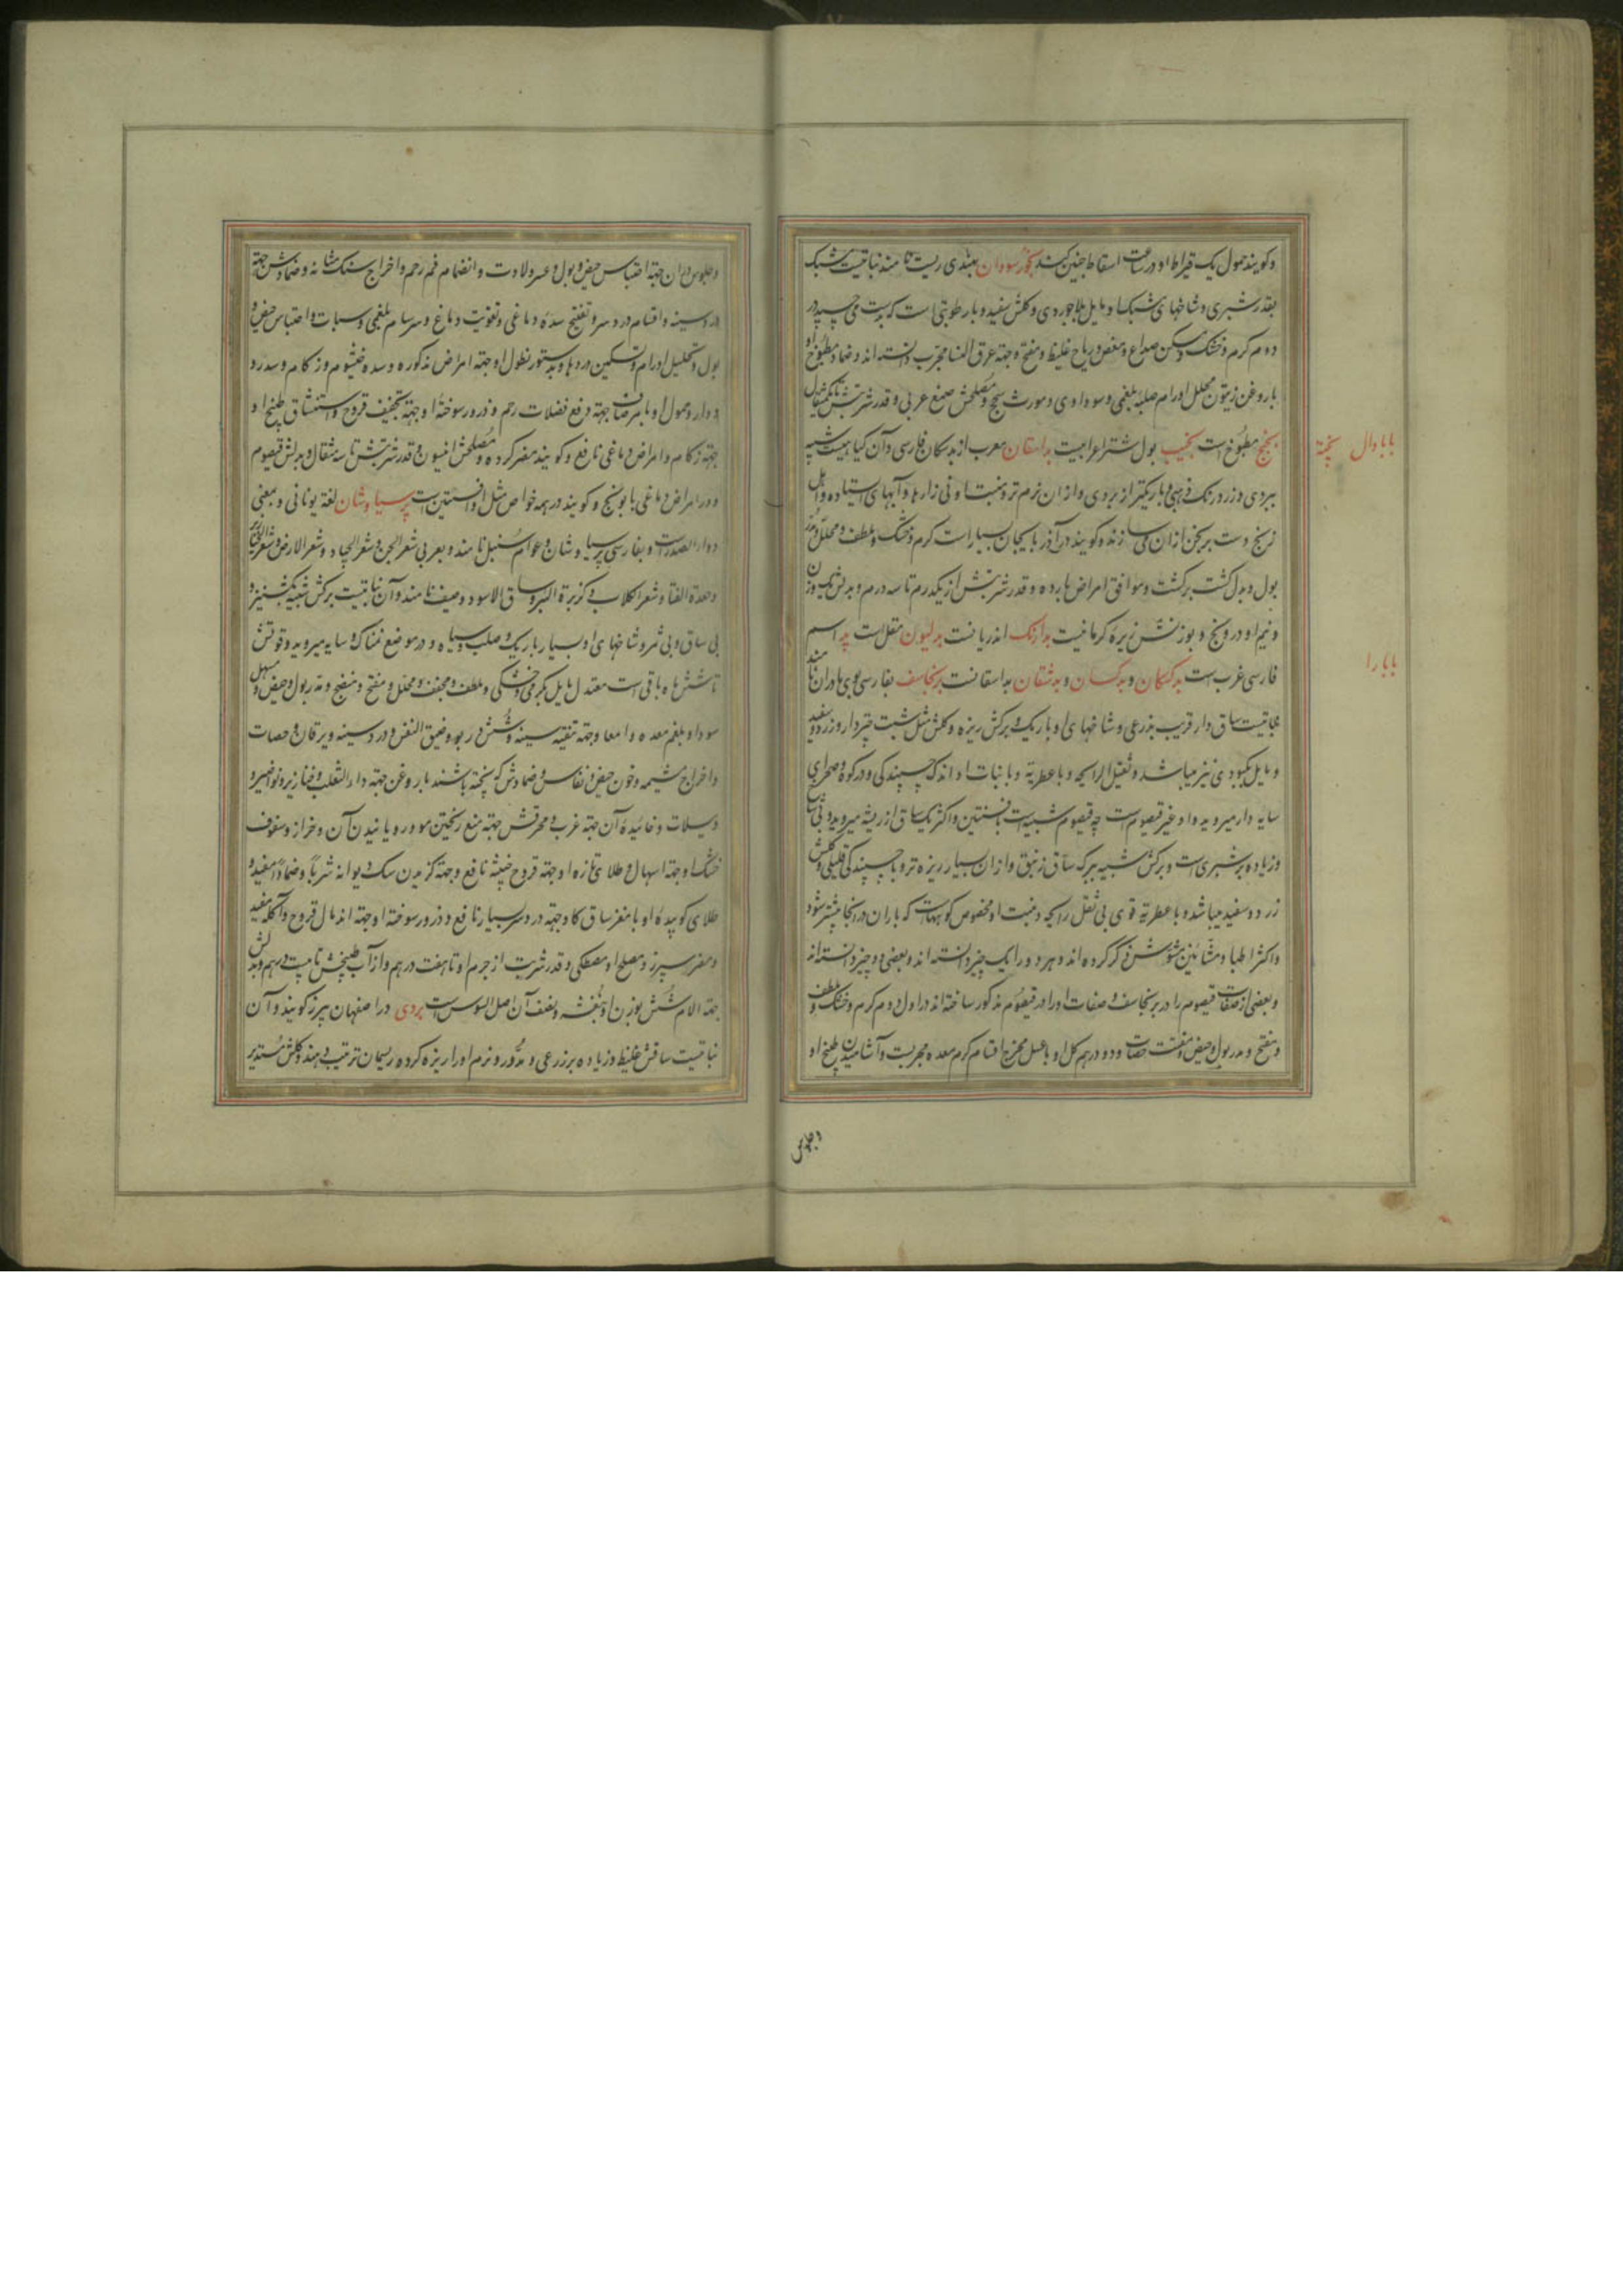 وکویند حمول یک قیراط او در ساعت اسقاط جنین کند بخورسودان بهندی ریت نامند نباتیست مشبک
بقدر شبری و شاخهای مشبک او مایل بلاجوردی و کلش سفید و با رطوبتی است که بدست می چسپد در
دوم کرم و خشک و مسکن صداع و مغص و ریاح غلیظ و مفتح و جهة عرق النسا مجرب دانسته اند و ضماد مطبوخ او
با روغن زیتون محلل اورام صلبه بلغمی و سوداوی و مورث سحج و مصلحش صمغ عربی و قدر شربتش تا یکمثقال
بختج مطبوخ است بخیب بول شتر اعرابیست بداسقان معرب از بدسکان فارسی و آن کیاهیست شبیه
ببردی و زرد رنک ذهبی و باریکتر از بردی و از ان نرم تر و منبت او نی زارها و آبهای استاده و اهل
زنج دست برنجن از ان می سازند و کویند در آذربایجان بسیار است کرم و خشک و ملطف و محلل و مدر
بول و بدل کشت برکشت و موافق امراض بارده و قدر شربتش از یکدرم تا سه درم و بدلش یک وزن
و نیم او درونج و بوزنش زیره کرمانیست بدارنک اندریانست بدلیون مقل است بد اسم
فارسی غرب است بدکسکان و بدکسان و بدشقان بداسقانست برنجاسف بفارسی بوی مادران نامند
نباتیست ساق دار قریب بذرعی و شاخهای او باریک و برکش ریزه و کلش مثل شبت چتردار و زرد و سفید
و مایل بکبودی نیز میباشد و ثقیل الرایحه و با عطریة و با نبات او اندک چسپندکی و در کوه و صحرای
سایه دار میروید و او غیر قیصوم است چه قیصوم شبیه است بافسنتین و اکثر یک ساق از ریشه میروید و بی شاخ
و زیاده بر شبری است و برکش شبیه ببرک ساق زنبق و از ان بسیار ریزه تر و با چسپندکی قلیلی و کلش
زرد و سفید میباشد و با عطریة قوی بی ثقل رایحه و منبت او مخصوص کوههاست که باران در انجا بیشتر شود
و اکثر اطبا و مشائین مشوش ذکر کرده اند و هر دو را یک چیز دانسته اند و بعضی دو چیز دانسته اند
و بعضی از صفات قیصوم را در برنجاسف و صفات او را در قیصوم مذکور ساخته اند در اول دوم کرم و خشک و ملطف
و مفتح و مدر بول و حیض و مفتت حصات و دو درهم کل او با عسل مخرج اقسام کرم معده مجربست و آشامیدن طبیخ او
وجلوس
بابادال بخته
بابارا
وجلوس در ان جهة احتباس حیض و بول و عسر ولادت و انضمام فم رحم و اخراج سنک مثانه و ضمادش جهة
درد سینه و اقسام درد سر و تفتیح سده دماغی و تقویت دماغ و سرسام بلغمی و سبات و احتباس حیض و
بول و تحلیل اورام و تسکین دردها و بدستور نطول او جهة امراض مذکوره و سده خیشوم و زکام و سدر و
دوار و حمول او با مر صاف جهة دفع فضلات رحم و ذرور سوختۀ او جهة تجفیف قروح و استنشاق طبیخ او
جهة زکام و امراض دماغی نافع و کویند مضر کرده و مصلحش انیسون و قدر شربتش تا سه مثقال و بدلش قیصوم
و در امراض دماغی بابونج و کویند در همه خواص مثل افسنتین است پرسیاوشان لغة یونانی و بمعنی
دواء الصدر است و بفارسی پرسیاوشان و عوام سنبل نامند و بعربی شعر الجن و شعر الجبار و شعر الارض و شعر الخنازیر
وجعدة القنا و شعر الکلاب و کزبرة البیر و ساق الاسود و وصیف نامند و آن نباتیست برکش شبیه بکشنیز و
بی ساق و بی ثمر و شاخهای او بسیار باریک و صلب و سیاه و در موضع نمناک و سایه میروید و قوتش
تا شش ماه باقی است معتدل مایل بکرمی و خشکی و ملطف و مجفف و محلل و مفتح و منضج و مدر بول و حیض و مسهل
سودا و بلغم معده و امعا و جهة تنقیه سینه و شش و ربو و ضیق النفس و درد سینه و یرقان و حصات
و اخراج مشیمه و خون حیض و نفاس و ضمادش که پخته باشند با روغن جهة داء الثعلب و خنازیر و نواصیر و
دبیلات و خائیدۀ آن جهة غرب و محرقش جهة منع ریختن مو و رویانیدن آن و خراز و سفوف
خشک او جهة اسهال و طلای تازه او جهة قروح خبیثه نافع و جهة کزیدن سک دیوانه شربا و ضمادا مفید و
طلای کوبیده او با مغز ساق کاو جهة درد سر بسیار نافع و ذرور سوخته او جهة اندمال قروح و آکله مفید
و مضر سپرز و مصلح او مصطکی و قدر شربت از جرم او تا هفت درهم و از آب طبیخش تا بیست درهم و بدلش
جهة الام شش بوزن او بنفشه و نصف آن اصل السوس است بردی در اصفهان پیزر کویند و آن
نباتیست ساقش غلیظ و زیاده بر ذرعی و مدور و نرم او را ریزه کرده ریسمان ترتیب دهند و کلش مستدیر